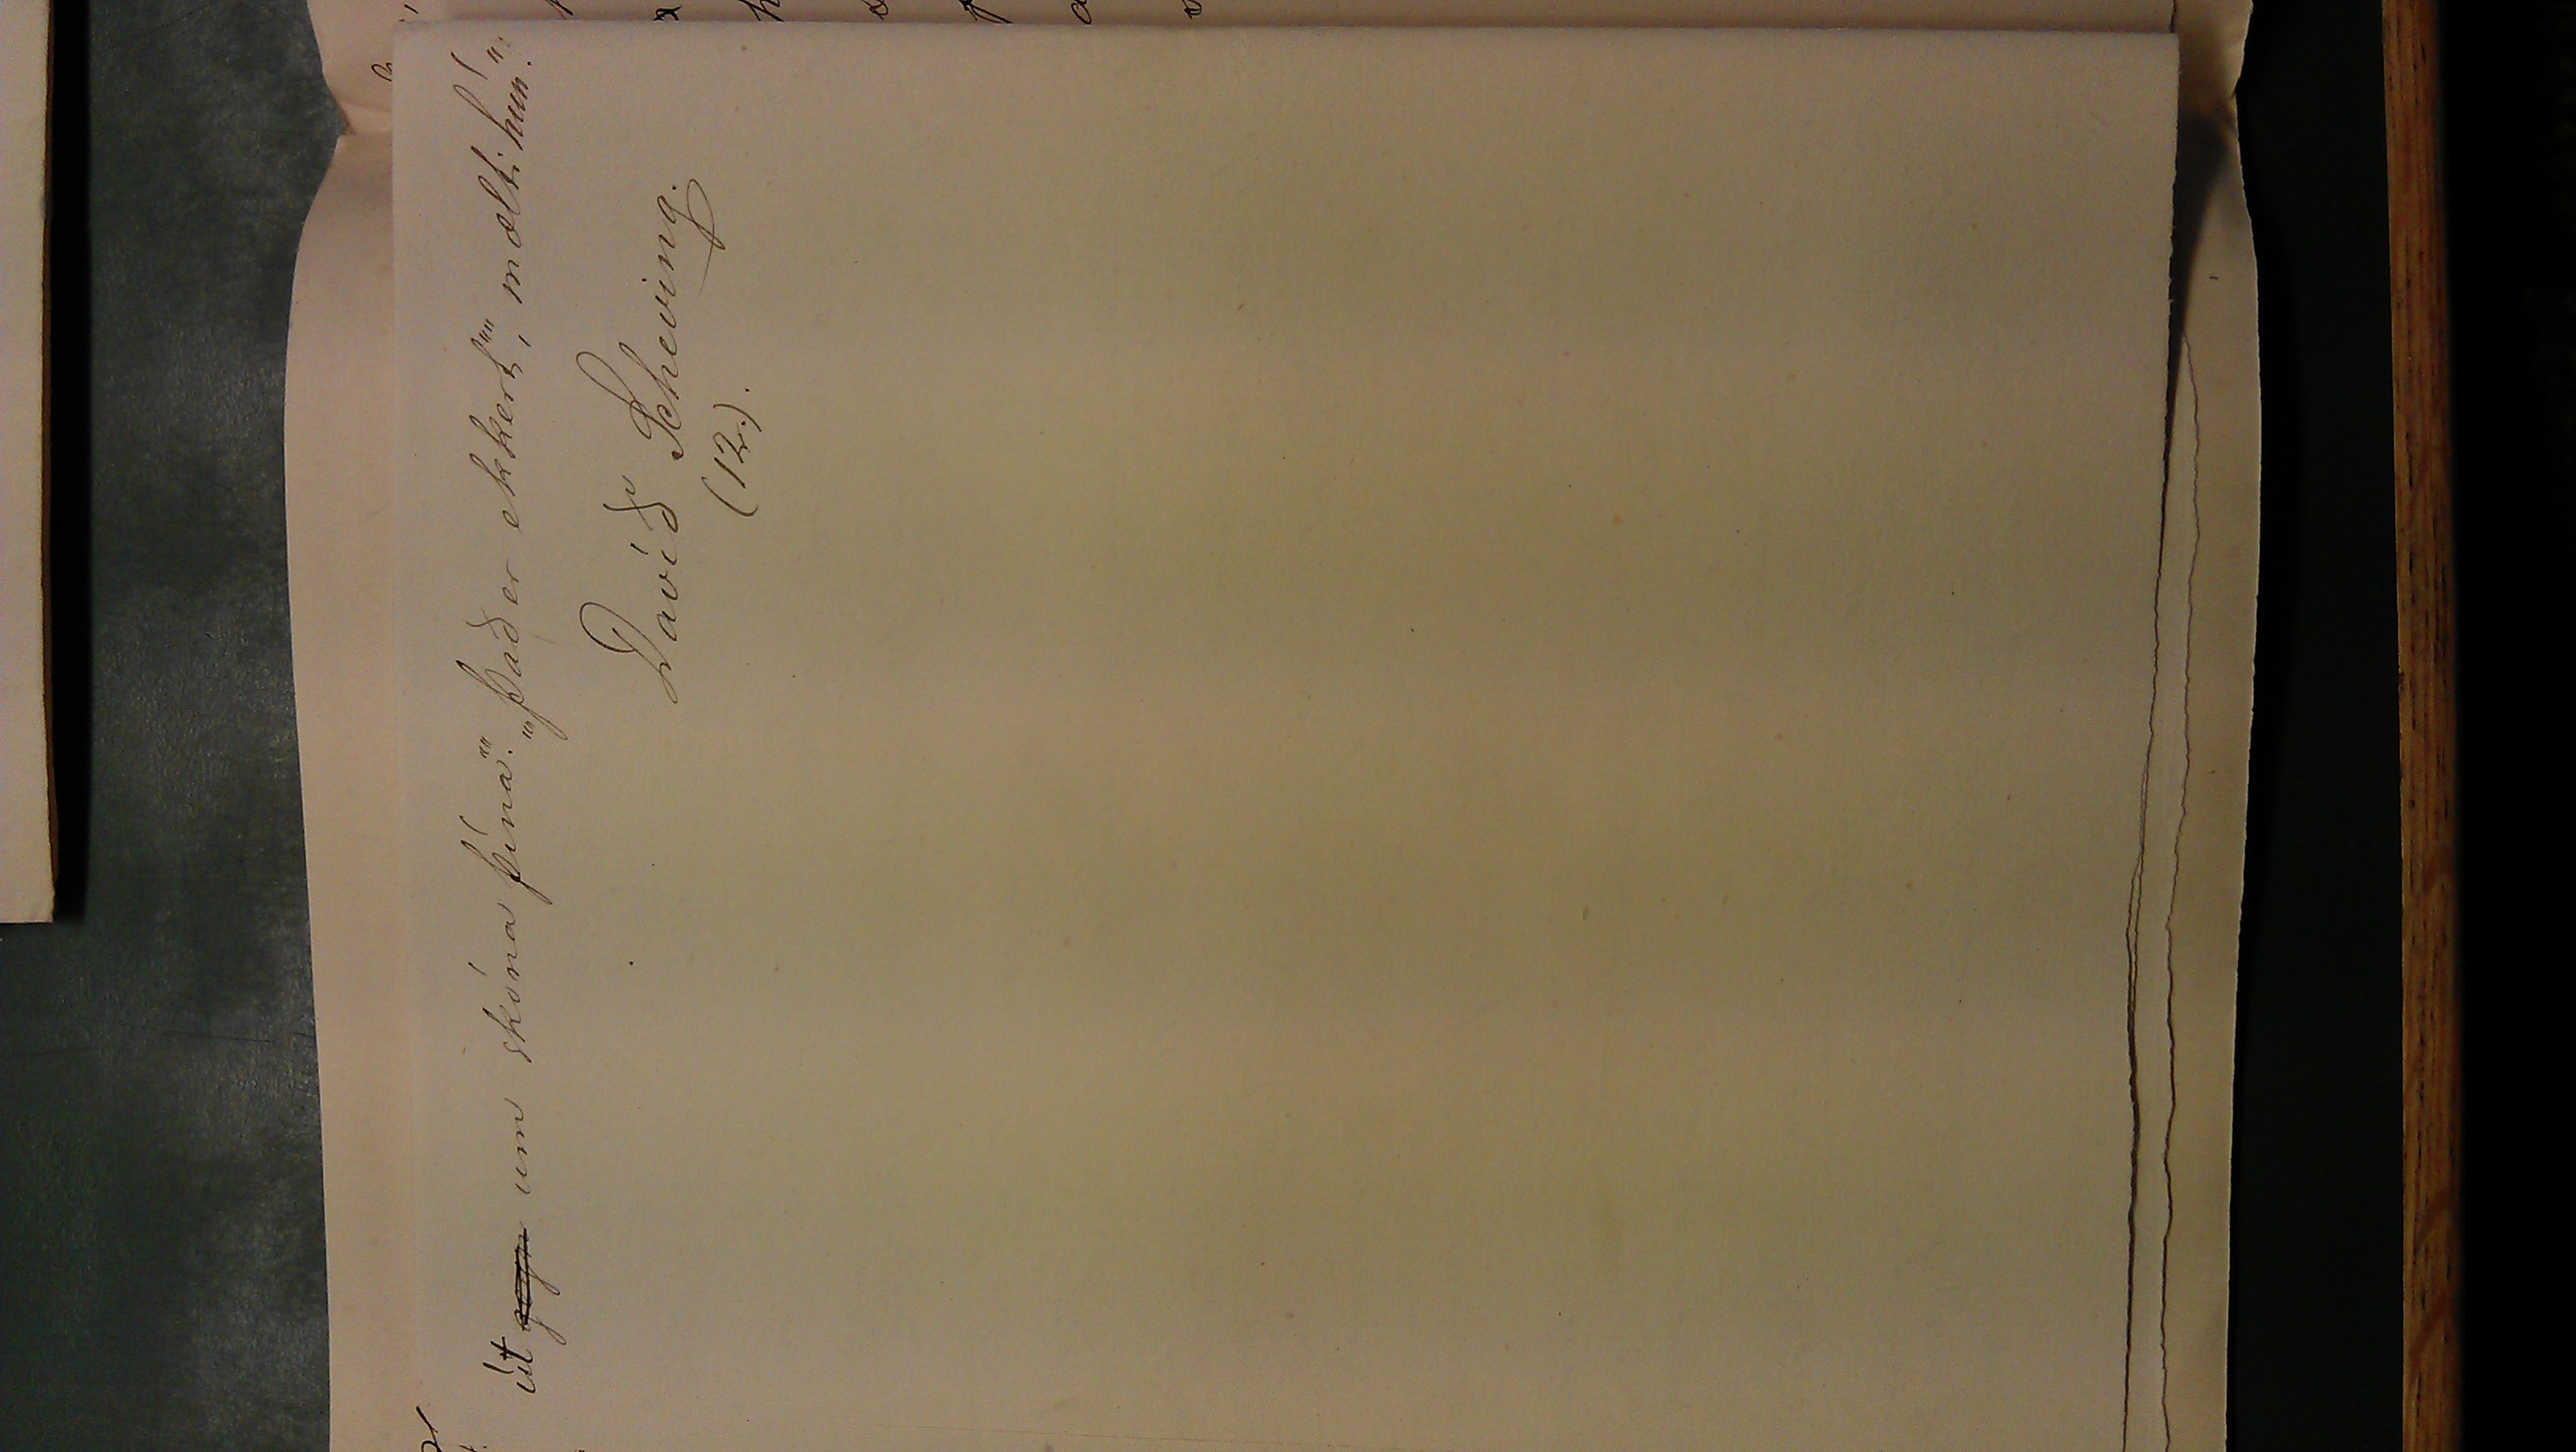 út um skóna þína"". ""Það er ekkert"", mælti hún".
Davíð Scheving.
(12r.).